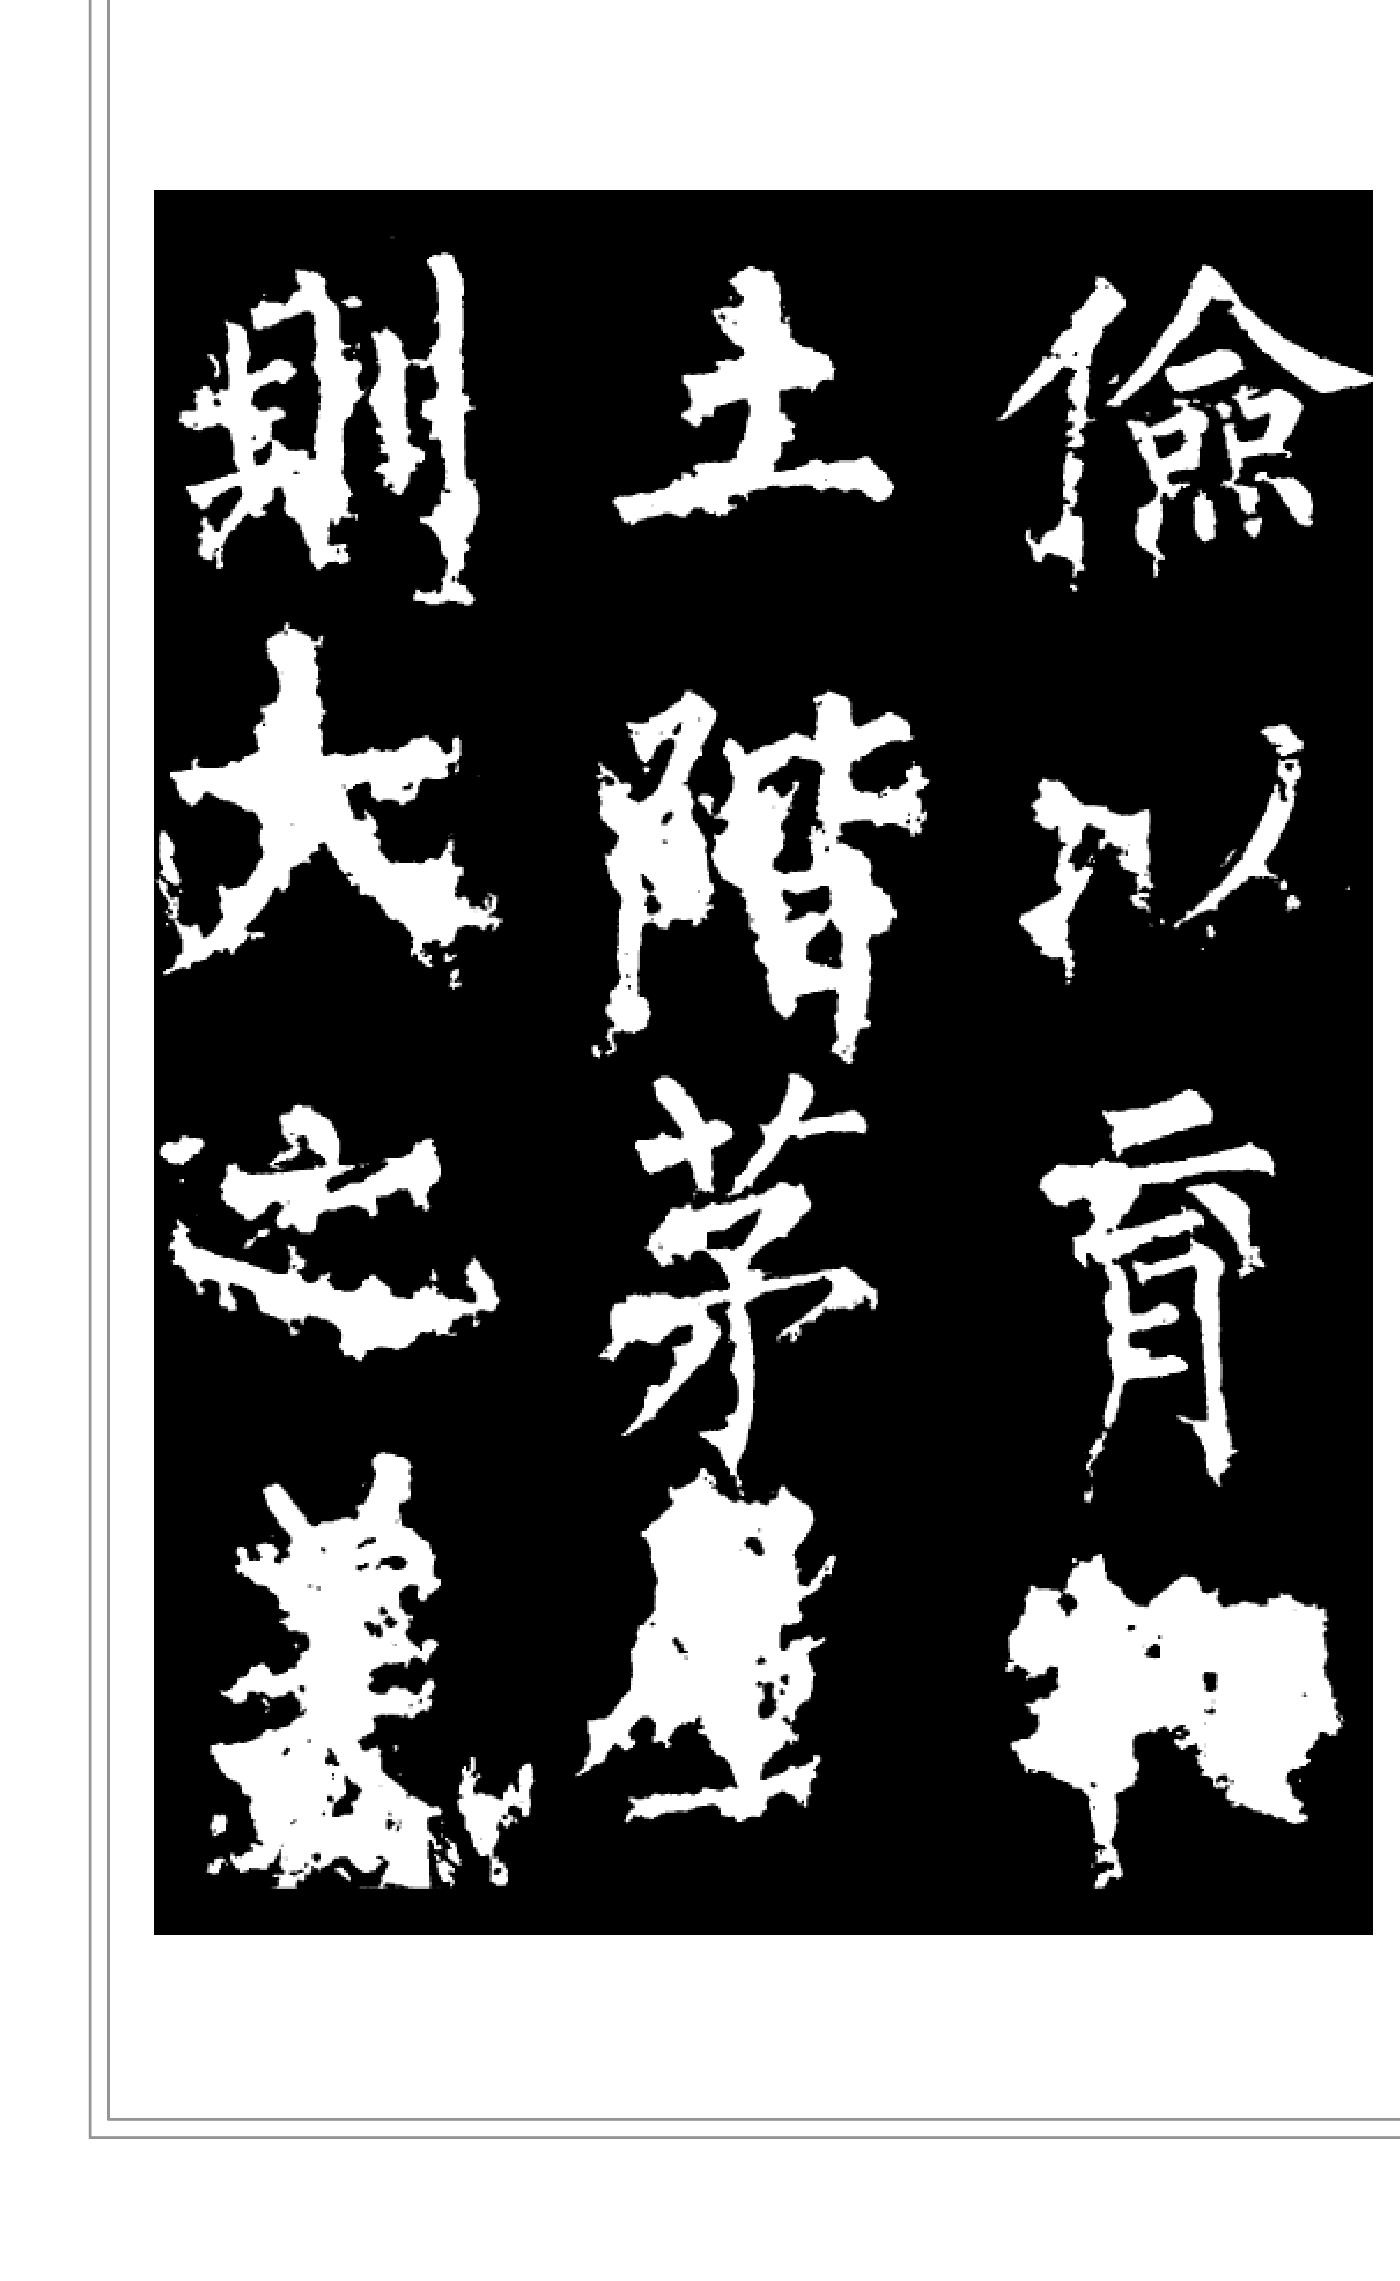 儉以育物
土階茅屋
則大之美